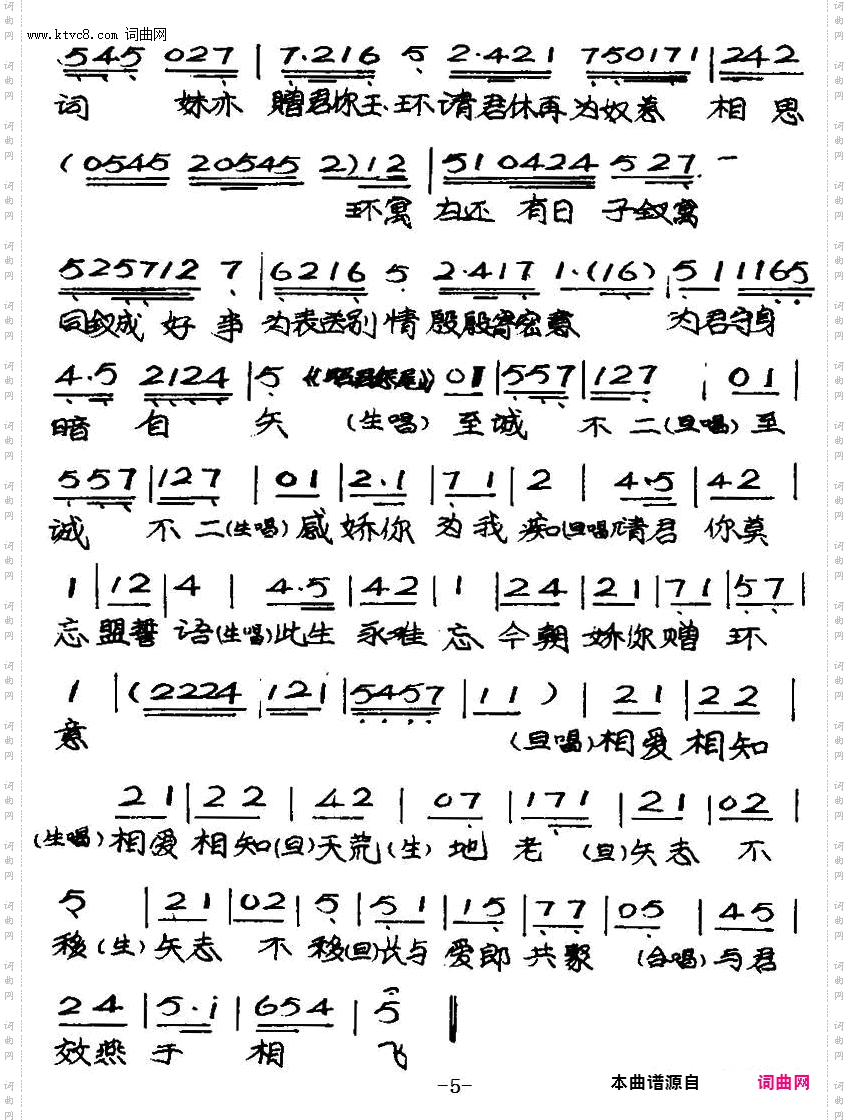 www.ktvc8.com 词曲网
545 027 | 7·216 5 2·421 750171 | 242
词 妹亦 赠君你玉环请君休再为奴惹 相思
(0545 20545 2)12 | 510424 527 -
环寓为还 有日 子钗寓
525712 7 | 6216 5 2·417 1·(16) 5 11165
同钗成好事 为表送别情殷殷寄宏意 为君守身
4·5 2124 | 5 01 | 557 | 127 | 01 |
暗自矢 (生唱) 至诚 不二(旦唱)至
557 | 127 | 01 | 2·1 | 71 | 2 | 4·5 | 42 |
诚 不二(生唱)感娇你为我痴(旦唱)请君你莫
1 | 12 | 4 | 4·5 | 42 | 1 | 24 | 21 | 71 | 57 |
忘盟誓语(生唱)此生永难忘今朝娇你赠环
1 | (2224 | 121 | 5457 | 11 ) | 21 | 22 |
意 (旦唱)相爱相知
21 | 22 | 42 | 07 | 171 | 21 | 02 |
(生唱)相爱相知(旦)天荒(生)地老 (旦)矢志不
5 | 21 | 02 | 5 | 51 | 15 | 77 | 05 | 45 |
移(生)矢志不移(旦)长与爱郎共聚 (合唱)与君
24 | 5·i | 654 | 5 ‖
效燕于相飞
-5- 本曲谱源自 词曲网